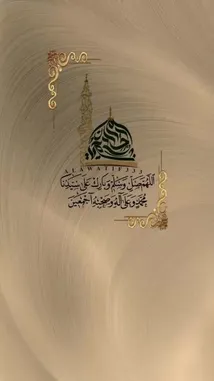 ALAWATIF333
اللهم صل وسلم وبارك على سيدنا
محمد وعلى آله وصحبه أجمعين